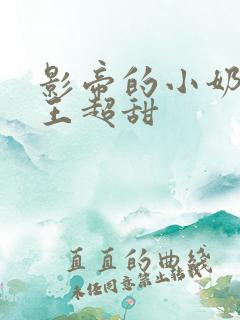 影帝的小奶
王超甜
直直的曲线
未经同意禁止转载